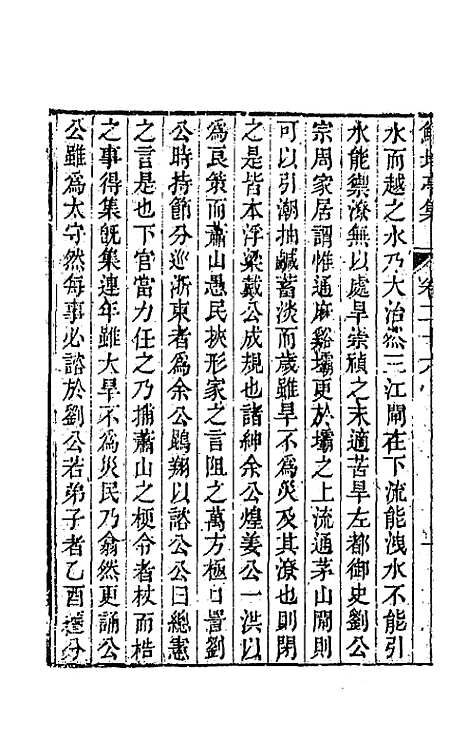 鮚埼亭集 卷二十六
水而越之水乃大治然三江閘在下流能洩水不能引
水能禦潦無以處旱崇禎之末適苦旱左都御史劉公
宗周家居謂惟通麻谿壩更於壩之上流通茅山閘則
可以引潮抽鹹蓄淡而歲雖旱不為災及其潦也則閉
之是皆本浮梁戴公成規也諸紳余公煌姜公一洪以
為良策而蕭山愚民挾形家之言阻之萬方極口詈劉
公時持節分巡浙東者為余公鵾翔以諮公公曰總憲
之言是也下官當力任之乃捕蕭山之梗令者杖而梏
之事得集旣集連年雖大旱不為災民乃翕然更誦公
公雖為太守然每事必諮於劉公若弟子者乙酉遷分